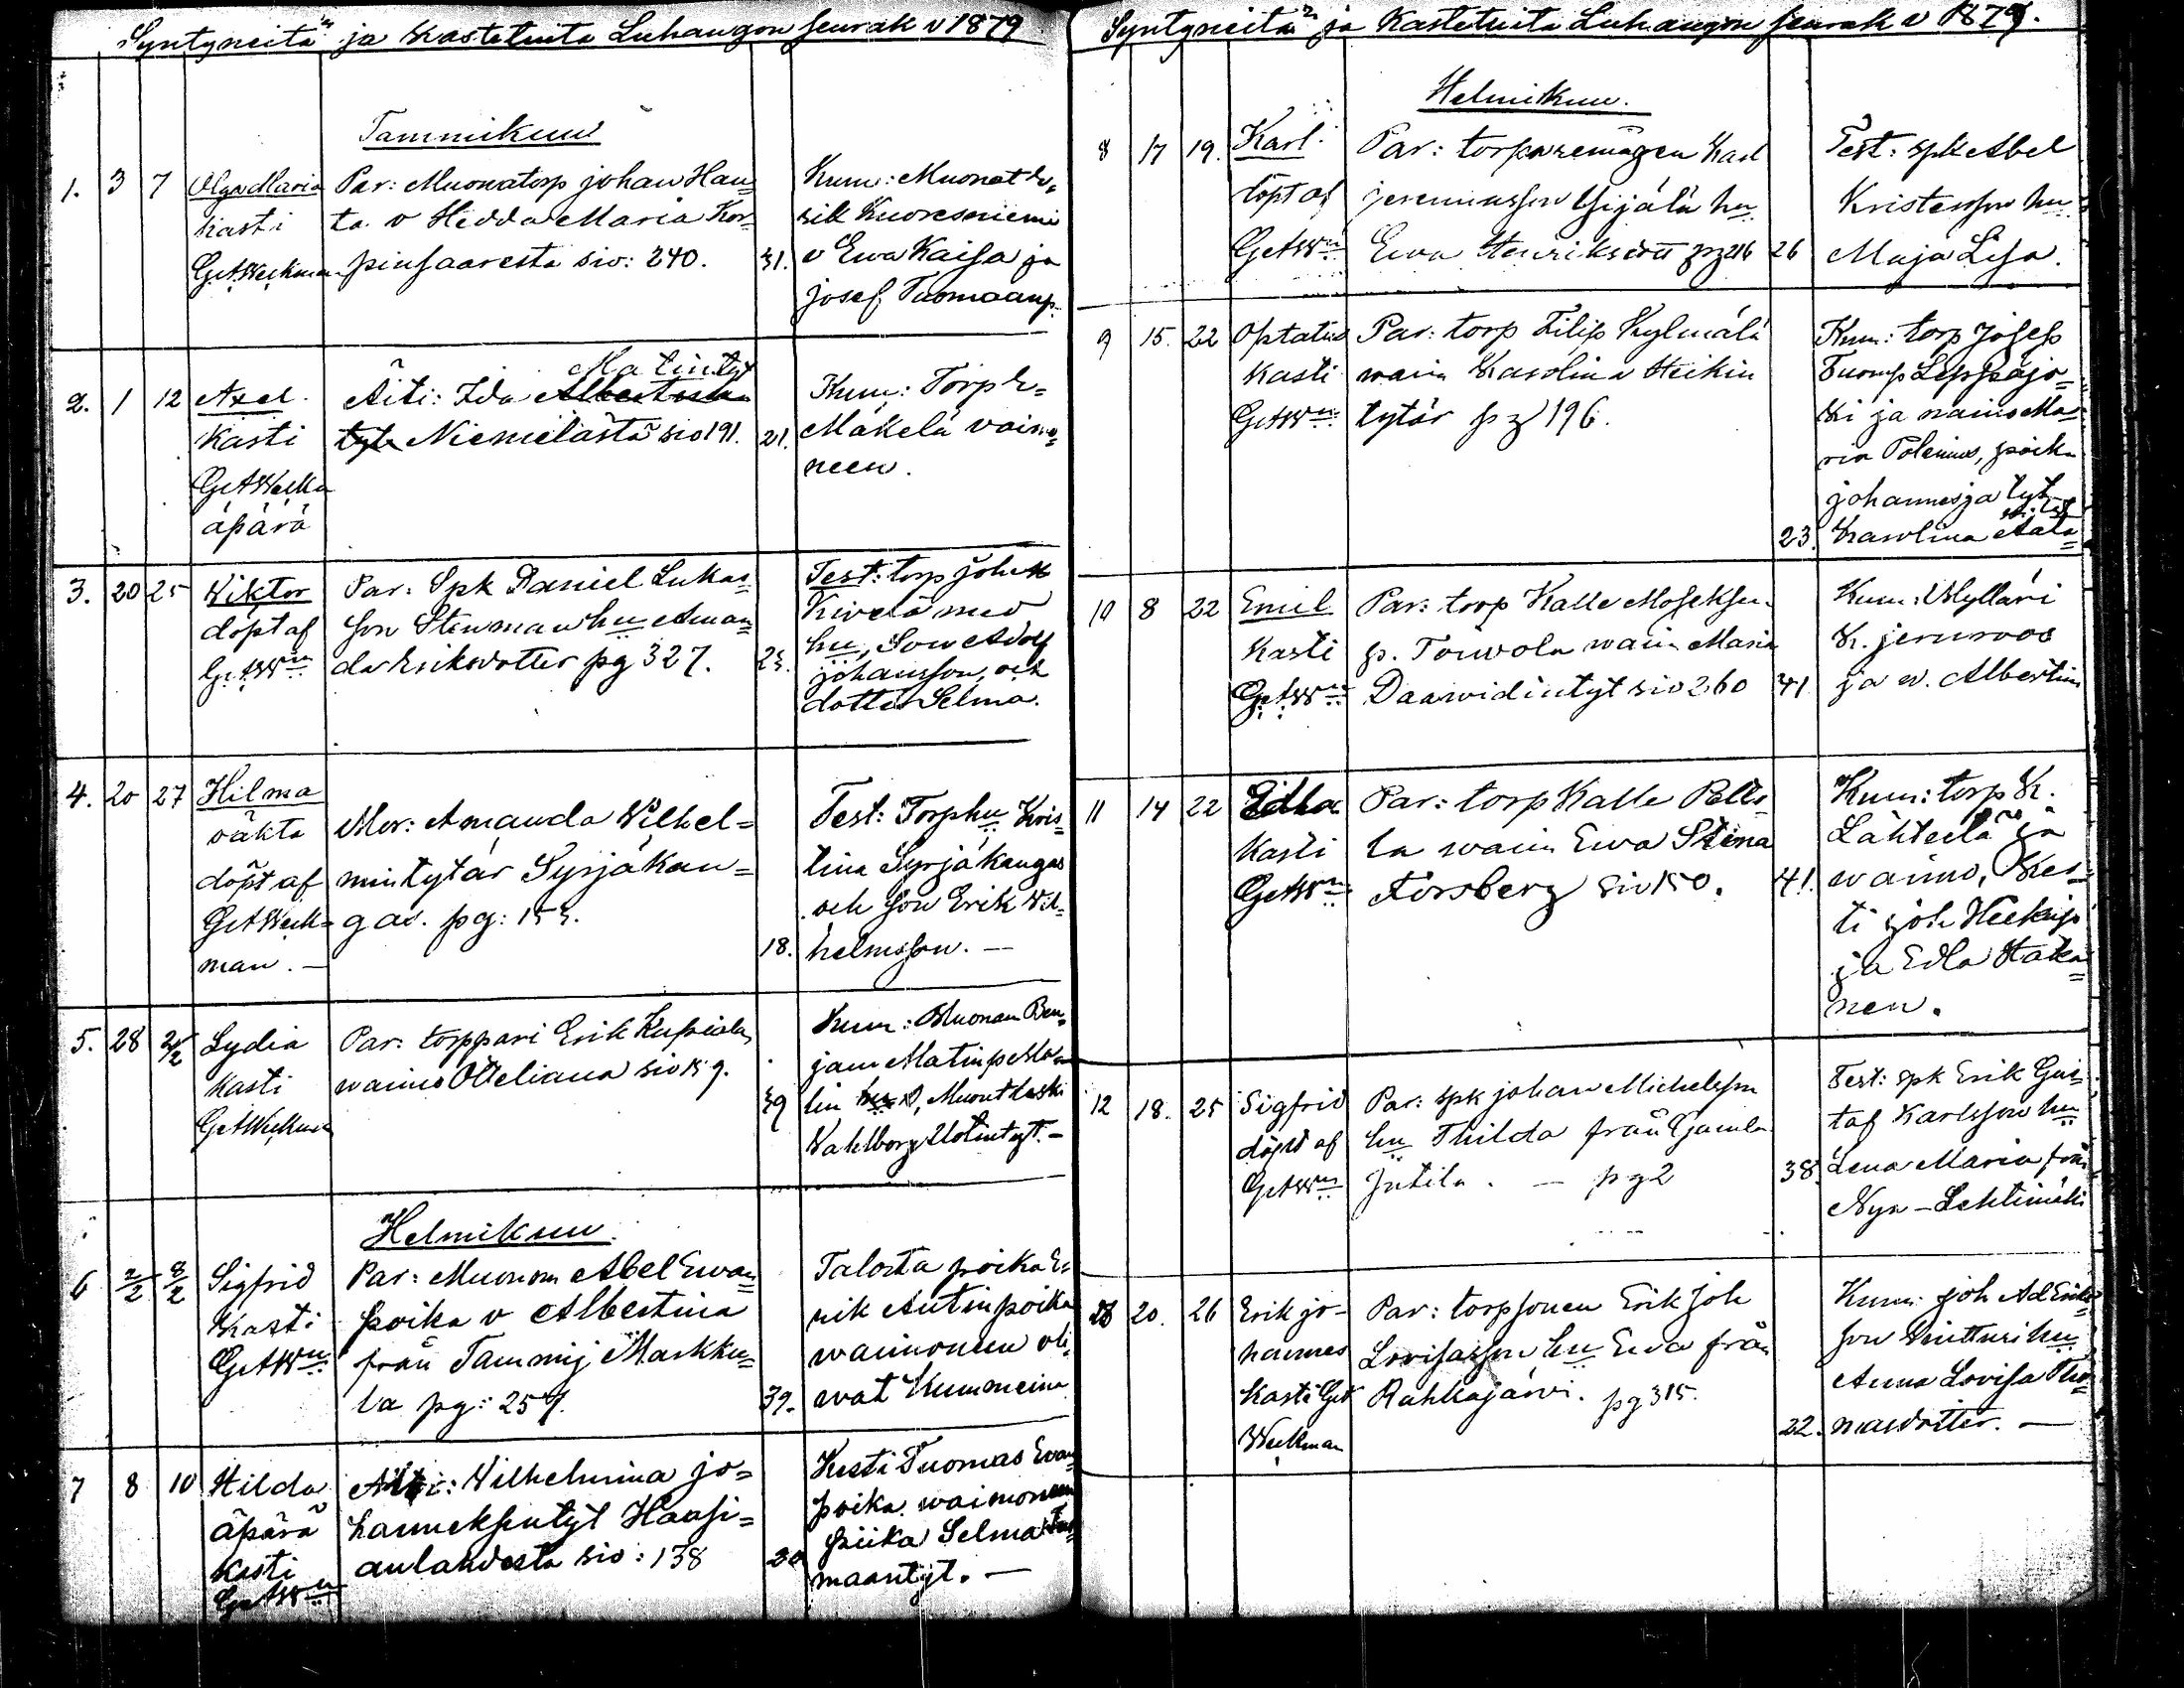 Syntyneitä ja Kastetuita Luhangon seurak v 1879
Tammikuu
1. 3 7 Olga Maria
Kasti
G A Weckman
Par: Muonatorp johan Hau=
ta v Hedda Maria Kor=
pinsaaresta siv: 240.
31.
Kum: Muonat
v Ewa Kaisa ja
josef Tuomaanp
2. 1 12 Axel
Kasti
äpärä
Matintyt
Äiti: Ida
Niemelästä siv 191.
21.
Kum: Torp E=
Mäkelä vaimo=
neen.
3. 20 25 Wiktor
döpt af
Par: Spk Daniel Lukas=
son Stenman hu Aman=
da Eriksdotter pg 327.
23.
Test: torp joh K
Kivelä med
hu, Son Adolf
johansson, och
dotter Selma.
4. 20 27 Hilma
oäkta
döpt af
G A Weck=
man. —
Mor: Amanda Wilhel=
mintytär Syrjäkan=
gas. pg: 153.
18.
Test: Torphu Kris=
tina Syrjäkangas
och Son Erik Wil=
helmsson. —
5. 28 2/2 Lydia
Kasti
G A Weckman
Par: torppari Erik Kupiala
waimo Otteliana siv 159.
39
Kum: Muonam Ben=
jam Matinp Mo=
lin Muontleski
Wahlborg
Helmikuu.
6 2/2 8/2 Sigfrid
Kasti
G A Wn
Par: Muonam Abel Ewan=
poika v Albertina
från Tammij Markku=
la pg: 257.
39.
Talosta poika E=
rik Antinpoika
waimoneen oli=
wat Kummeina
7 8 10 Hilda
äpärä
Kasti
G A Wn
Äiti: Wilhelmina jo=
hanneksentyt Haasi=
anlahdesta siv: 138
20
Kesti Tuomas Ewan=
poika waimoneen
piika Selma Tuo=
maantyt. —
Syntyneitä ja Kastetuita Luhangon seurak v 1879.
Helmikuu.
8 17 19. Karl
döpt af
G A Wn
Par: torparemågen Karl
jeremiasson Ysijälä hu
Ewa Henriksdott pg 216
26
Test: spk Abel
Kristersson hu
Maja Lisa.
9 15. 22 Optatus
Kasti
G A Wn
Par: torp Filip Kylmälä
waim Karolina Heikin
tytär pg 196.
23.
Kum: torp Josef
Tuomp Leppäjo=
ki ja waimo Ma=
ria Polenius, poika
johannes ja tyt
Karolina
10 8 22 Emil
Kasti
G A Wn
Par: torp Kalle Moseksen=
p. Toiwola waim Maria
Daawidintyt siv 260
41
Kum: Mylläri
K. jernroos
ja w. Albertin
11 14 22 Edla
Kasti
G A Wn
Par: torp Kalle Pelto=
la waim Ewa Stina
Forsberg siv 150.
41.
Kum: torp K.
Lähteelä ja
waimo, Kes=
ti joh Heikinp
ja Edla Haka=
nen.
12 18. 25 Sigfrid
döpt af
G A Wn
Par: spk johan Michelsson
hu Thilda från Gamla
Jutila. — pg 2
38.
Test: spk Erik Gus=
taf Karlsson hu
Lena Maria från
Nya-Lehtimäki
20. 26 Erik jo=
hannes
Kasti GA
Weckman
Par: torpsonen Erik Joh
Lovisasson hu Ewa från
Rahkajärvi. pg 315.
22.
Kum: joh Ad Eriks=
son Vintturi hu
Anna Lovisa Tho=
masdotter. —